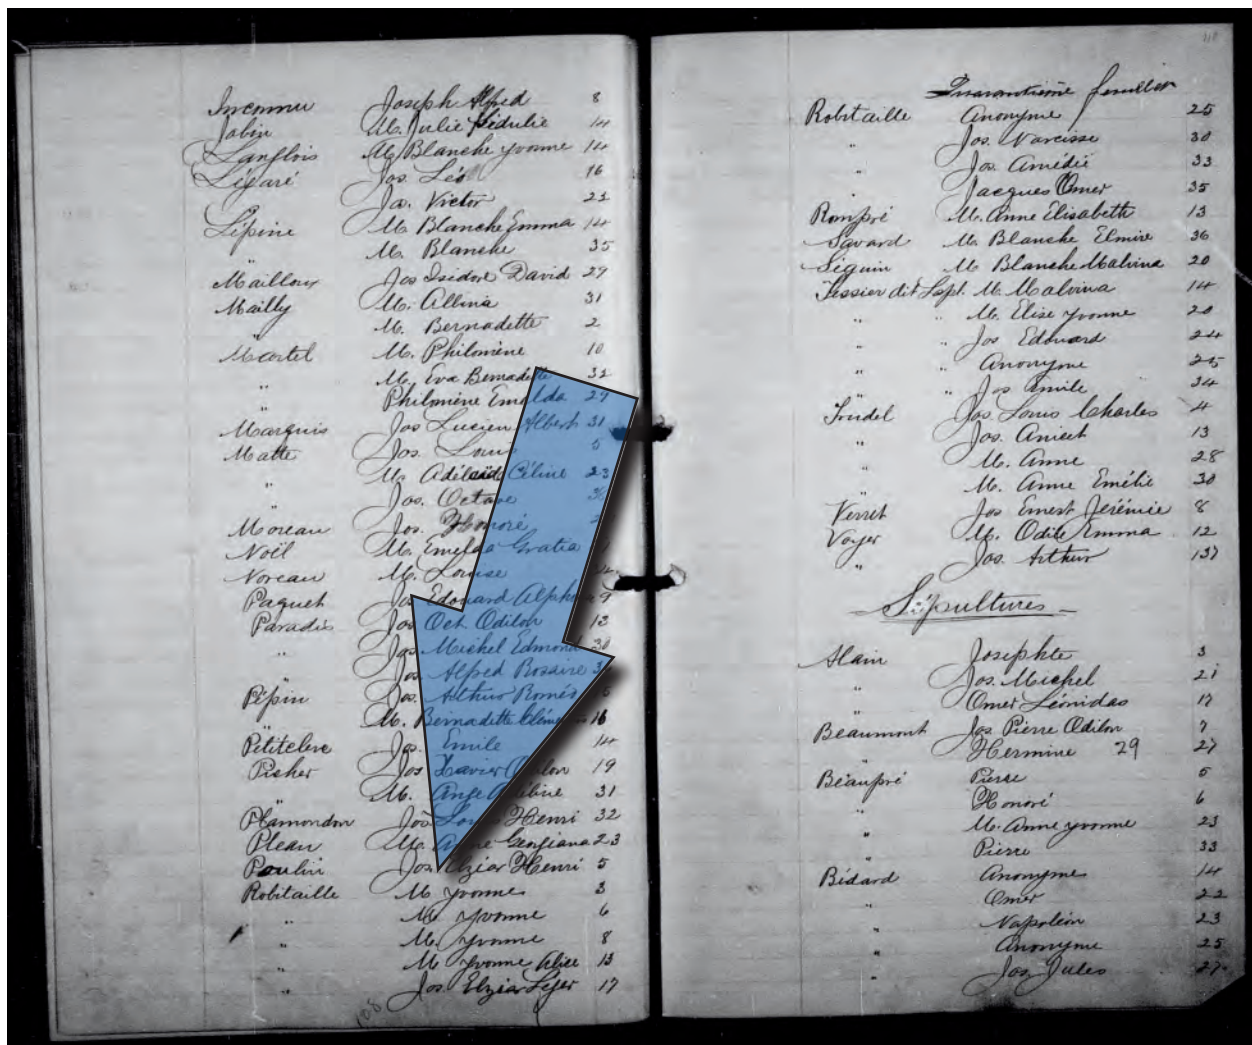 Inconnu Joseph Alfred 8
Jobin M. Julie Sédulie 14
Langlois M. Blanche Yvonne 14
Légaré Jos. Léo 16
Jos. Victor 23
Lépine M. Blanche Emma 14
" M. Blanche 35
Mailloux Jos Isidore David 27
Mailly M. Albina 31
M. Bernadette 2
Martel M. Philomène 10
" M. Eva Bernadette 32
" Philomène Emelda 27
Marquis Jos Lucien Albert 31
Matte Jos. Louis 5
" M. Adélaïde Céline 23
Jos. Octave
Moreau Jos. Honoré
Noël M. Emelda Gratia
Noreau M. Louise
Paquet Jos Edouard Alphonse 9
Paradis Jos Oct. Odilon 12
" Jos Michel Edmond 30
Jos Alfred Rosaire
Pépin Jos. Arthur Roméo
" M. Bernadette 16
Petitclerc Jos. Emile 14
Pisher Jos Xavier Odilon 19
" M. Ange 31
Plamondon Jos Louis Henri 32
Pleau M. Georgiana 23
Poulin Jos. Elzéar Henri 5
Robitaille M Yvonne 3
" M. Yvonne 6
" M. Yvonne 8
" M Yvonne Alice 13
" Jos Elzéar Léger 17
108
Quarantième feuillet
Robitaille Anonyme 25
" Jos. Narcisse 30
" Jos. Amédée 33
" Jacques Omer 35
Rompré M. Anne Elisabeth 13
Savard M. Blanche Elmire 36
Séguin M Blanche Malvina 20
Tessier dit Lapl. M. Malvina 14
" " M. Elise Yvonne 20
" " Jos Edouard 24
" Anonyme 25
" " Jos Emile 34
Trudel Jos. Louis Charles 4
" Jos. Anicet 13
" M. Anne 28
" M. Anne Emélie 30
Verret Jos Ernest Jérémie 8
Voyer M. Odile Emma 12
" Jos. Arthur 13
Sépultures
Alain Josephte 3
" Jos. Michel 21
" Omer Léonidas 17
Beaumont Jos Pierre Odilon 7
" Hermine 29 27
Beaupré Pierre 5
" Honoré 6
" M. Anne Yvonne 23
" Pierre 33
Bédard Anonyme 14
" Omer 22
" Napoléon 23
" Anonyme 25
" Jos Jules 27